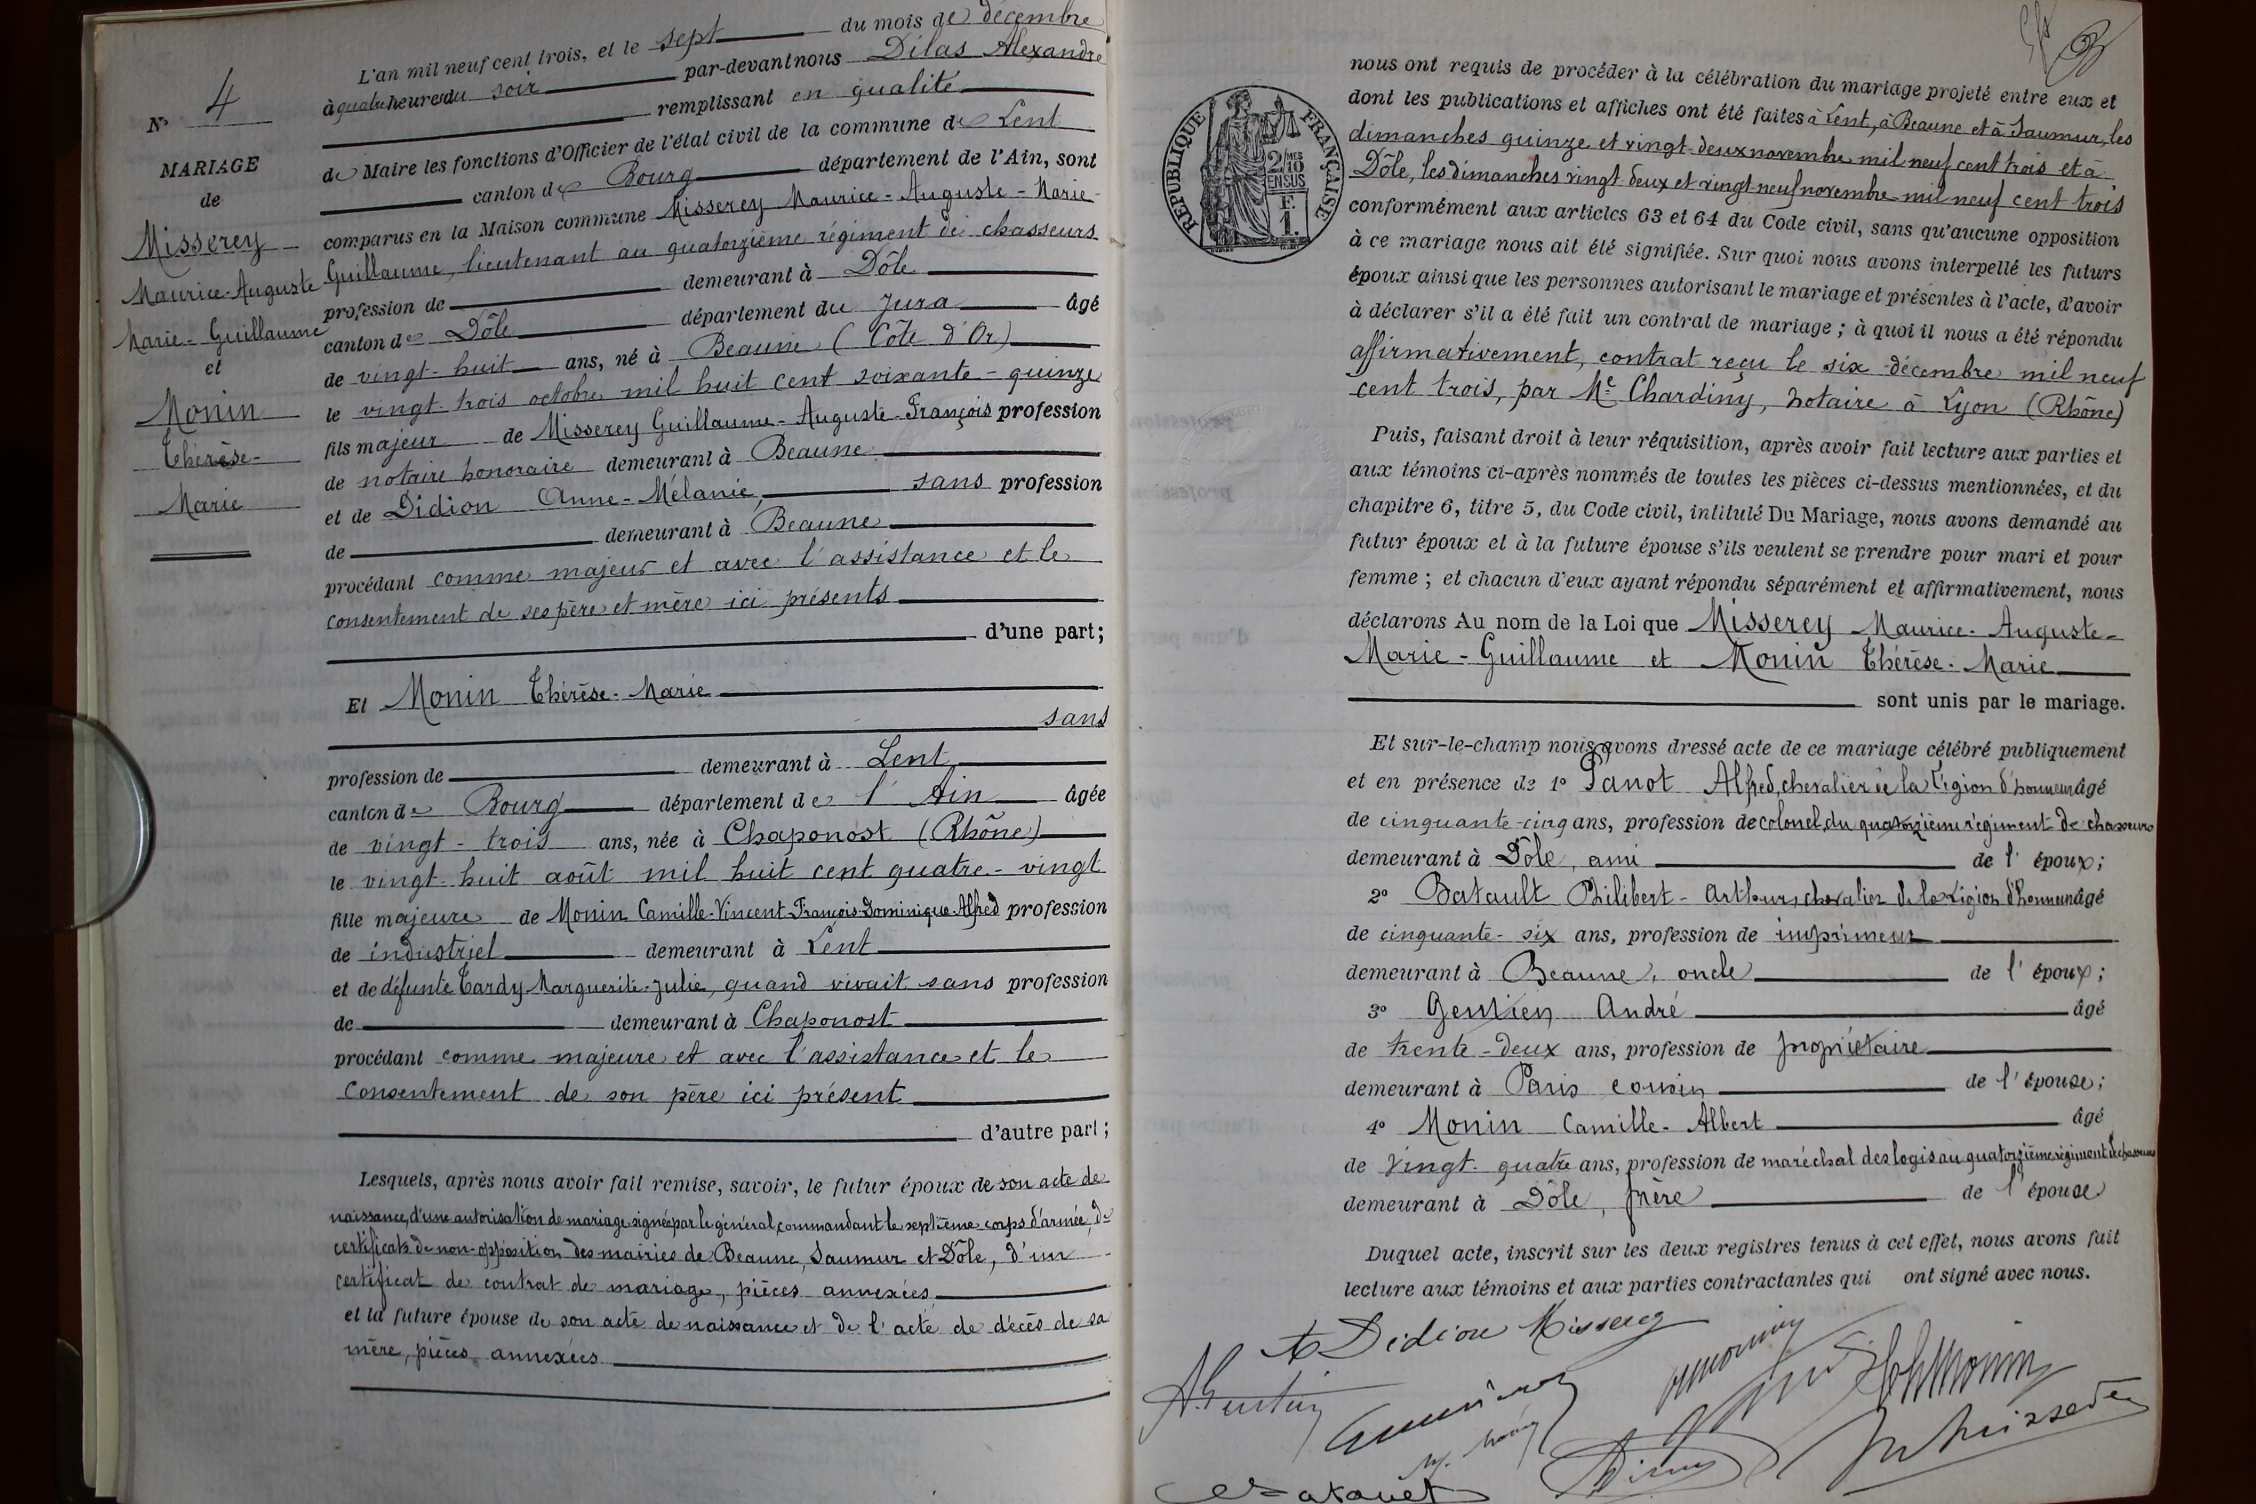 N° 4
MARIAGE
de
Misserey
Maurice-Auguste
Marie-Guillaume
et
Monin
Thérèse-
Marie
L'an mil neuf cent trois, et le sept du mois de décembre
à quatre heures du soir par-devant nous Dilas Alexandre
remplissant en qualité
de Maire les fonctions d'Officier de l'état civil de la commune de Lent
canton de Bourg département de l'Ain, sont
comparus en la Maison commune Misserey Maurice-Auguste-Marie-
Guillaume, lieutenant au quatorzième régiment de chasseurs
profession de demeurant à Dôle
canton de Dôle département du Jura âgé
de vingt-huit ans, né à Beaune (Côte d'Or)
le vingt-trois octobre mil huit cent soixante-quinze
fils majeur de Misserey Guillaume-Auguste-François profession
de notaire honoraire demeurant à Beaune
et de Didion Anne-Mélanie, sans profession
de demeurant à Beaune
procédant comme majeur et avec l'assistance et le
consentement de ses père et mère ici présents
d'une part;
Et Monin Thérèse-Marie
sans
profession de demeurant à Lent
canton de Bourg département de l'Ain âgée
de vingt-trois ans, née à Chaponost (Rhône)
le vingt-huit août mil huit cent quatre-vingt
fille majeure de Monin Camille-Vincent-François-Dominique-Alfred profession
de industriel demeurant à Lent
et de défunte Tardy Marguerite-Julie, quand vivait sans profession
de demeurant à Chaponost
procédant comme majeure et avec l'assistance et le
consentement de son père ici présent
d'autre part;
Lesquels, après nous avoir fait remise, savoir, le futur époux de son acte de
naissance, d'une autorisation de mariage signée par le général commandant le septième corps d'armée, de
certificats de non-opposition des mairies de Beaune, Saumur et Dôle, d'un
certificat de contrat de mariage, pièces annexées
et la future épouse de son acte de naissance et de l'acte de décès de sa
mère, pièces annexées
RÉPUBLIQUE FRANÇAISE
2/10MES
EN SUS
F.
1.
nous ont requis de procéder à la célébration du mariage projeté entre eux et
dont les publications et affiches ont été faites à Lent, à Beaune et à Saumur, les
dimanches quinze et vingt-deux novembre mil neuf cent trois et à
Dôle, les dimanches vingt deux et vingt neuf novembre mil neuf cent trois
conformément aux articles 63 et 64 du Code civil, sans qu'aucune opposition
à ce mariage nous ait été signifiée. Sur quoi nous avons interpellé les futurs
époux ainsi que les personnes autorisant le mariage et présentes à l'acte, d'avoir
à déclarer s'il a été fait un contrat de mariage; à quoi il nous a été répondu
affirmativement, contrat reçu le six décembre mil neuf
cent trois, par Me Chardiny, notaire à Lyon (Rhône)
Puis, faisant droit à leur réquisition, après avoir fait lecture aux parties et
aux témoins ci-après nommés de toutes les pièces ci-dessus mentionnées, et du
chapitre 6, titre 5, du Code civil, intitulé Du Mariage, nous avons demandé au
futur époux et à la future épouse s'ils veulent se prendre pour mari et pour
femme; et chacun d'eux ayant répondu séparément et affirmativement, nous
déclarons Au nom de la Loi que Misserey Maurice-Auguste-
Marie-Guillaume et Monin Thérèse-Marie
sont unis par le mariage.
Et sur-le-champ nous avons dressé acte de ce mariage célébré publiquement
et en présence de 1° Panot Alfred, chevalier de la Légion d'honneur âgé
de cinquante-cinq ans, profession de colonel du quatorzième régiment de chasseurs
demeurant à Dôle, ami de l'époux;
2° Batault Philibert-Arthur, chevalier de la Légion d'honneur âgé
de cinquante-six ans, profession de imprimeur
demeurant à Beaune, oncle de l'époux;
3° Gentien André âgé
de trente-deux ans, profession de propriétaire
demeurant à Paris cousin de l'épouse;
4° Monin Camille-Albert âgé
de vingt-quatre ans, profession de maréchal des logis au quatorzième régiment de chasseurs
demeurant à Dôle, frère de l'épouse
Duquel acte, inscrit sur les deux registres tenus à cet effet, nous avons fait
lecture aux témoins et aux parties contractantes qui ont signé avec nous.
A Didion Misserey
A. Gentien
Monin
Misserey
Dilas
Batault